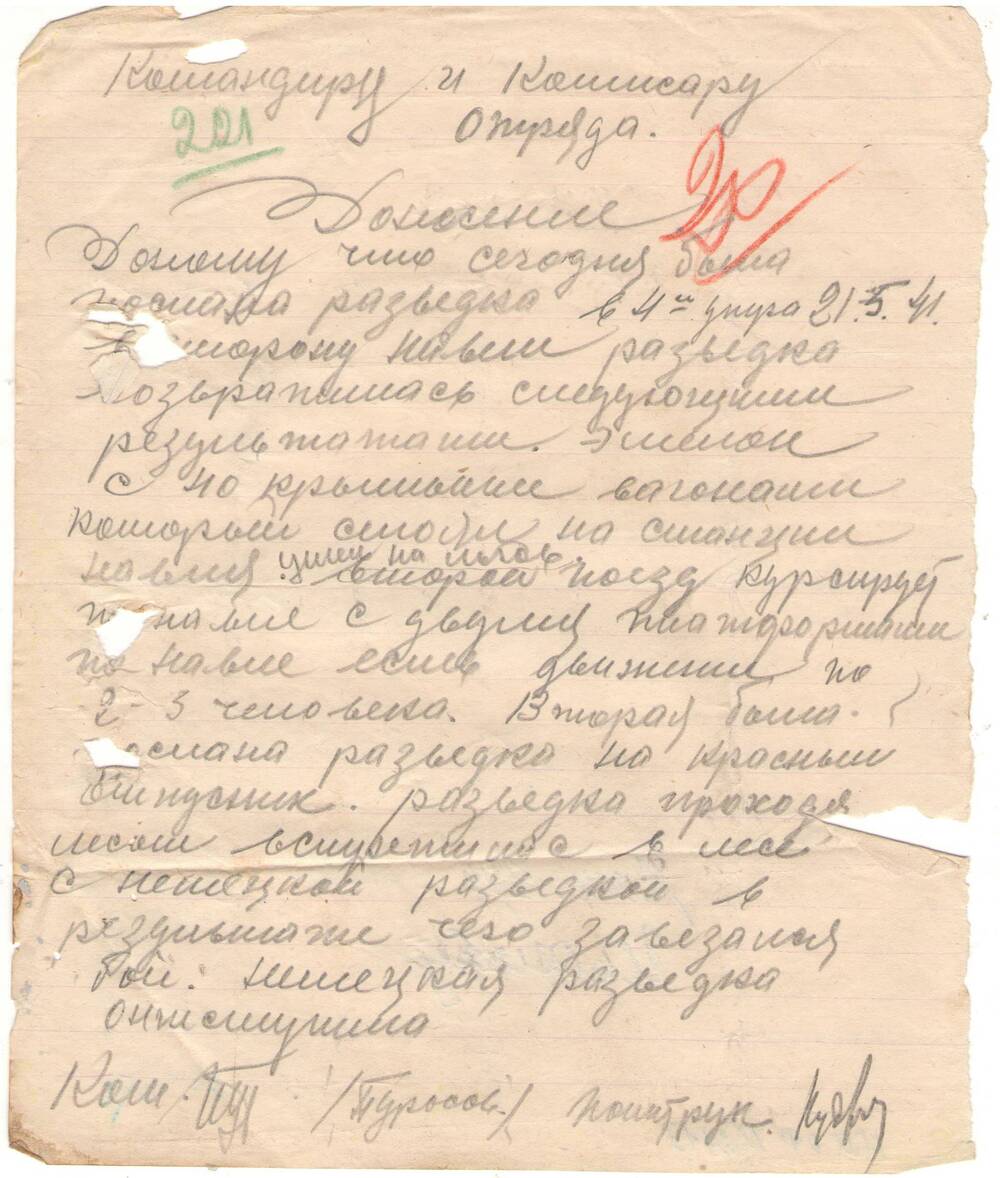 Командиру и Комисару
221 Отряда.
Донесение
Доношу что сегодня была
послана разведка в 4 утра 21.5.41.
сторону Навли разьедка
возвратилась следующими
результатами. Эшелон
с 40 крытыми вагонами
который стоял на станции
Навля ушел на Льгов.
второй поезд курсирует
Навле с двумя платформами
по Навле есть движении по
2-3 человека. Вторая была
послана разьедка на Красный
разьедка проходя
лесом встретилас в лесе
с немецкой разьедкой в
результате чего завезался
бой. Немецкая разьедка
отступила
Ком. /Туросов/ Политрук.